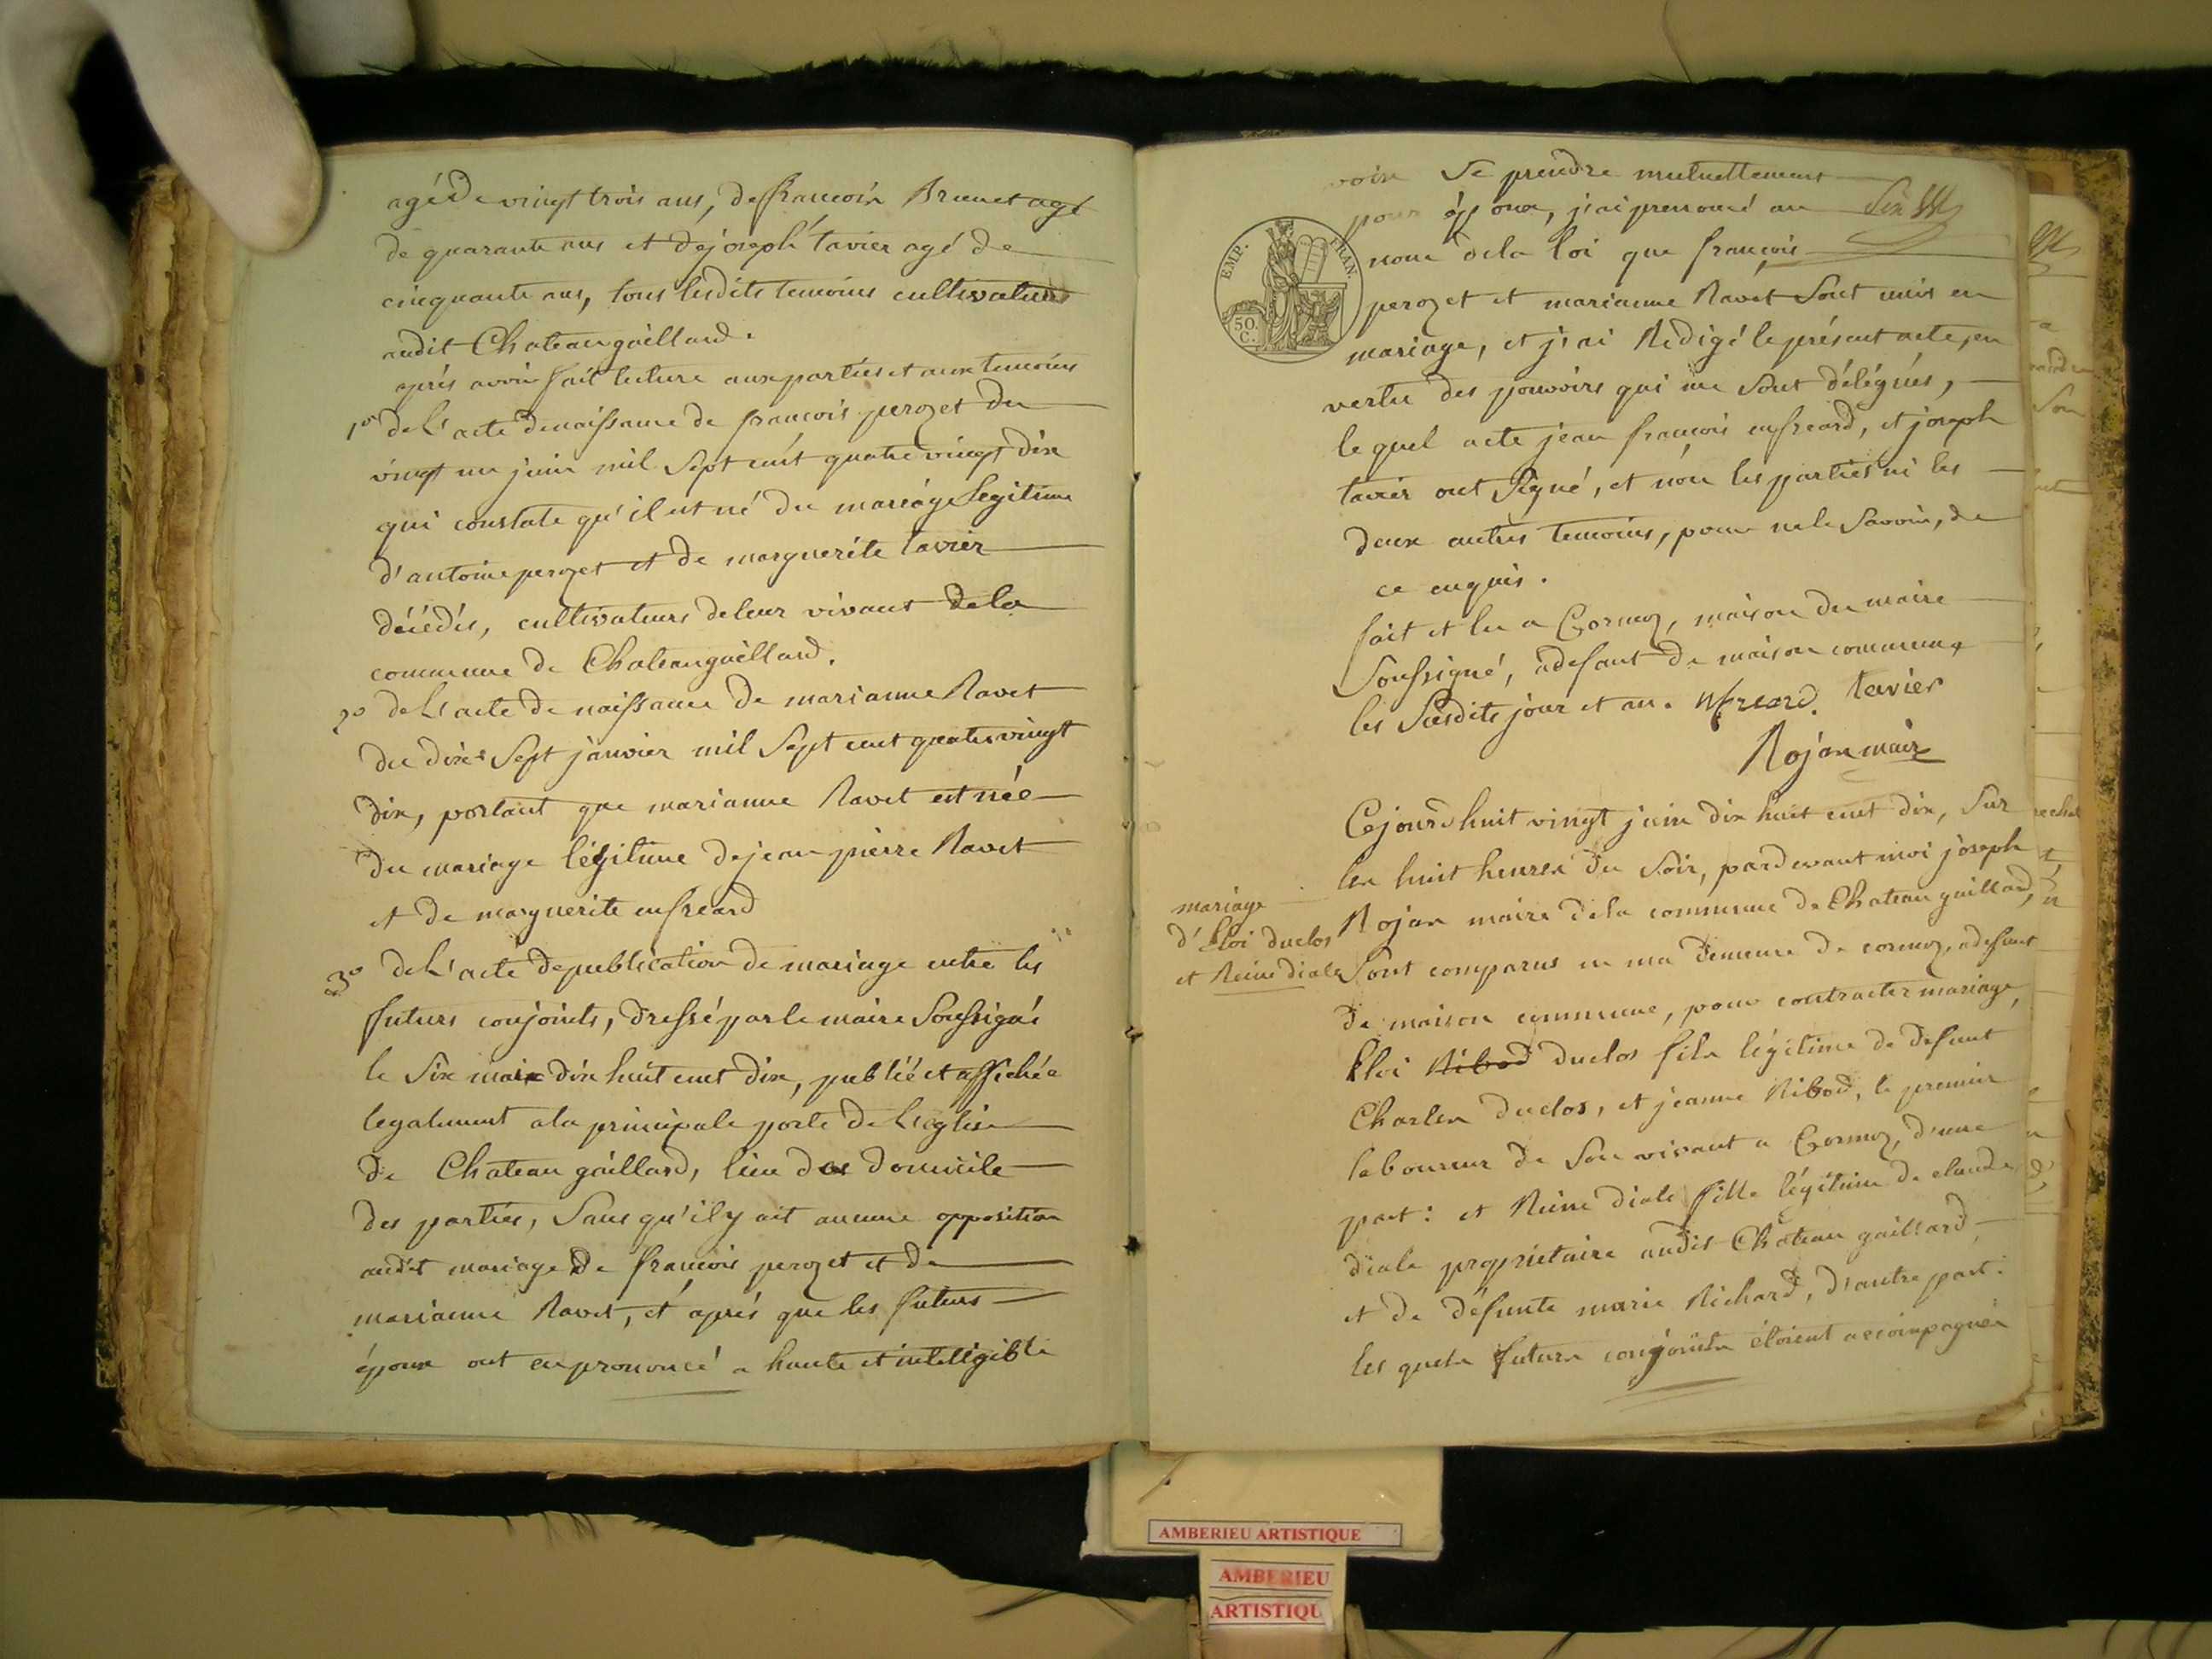 agé De vingt trois ans, de francois Brunet agé
de quarante ans et de joseph tavier agé de
cinquante ans, tous lesdits temoins cultivateurs
audit Chateaugaillard.
aprés avoir fait lecture aux parties et aux temoins
1º de L'acte de naissance de francois perozet du
vingt un juin mil Sept cent quatre vingt dix
qui constate qu'il est né du mariage Legitime
d'antoine perozet et de marguerite tavier
décédés, cultivateurs de leur vivant de la
commune de Chateaugaillard.
2º de L'acte de naissance de marianne Ravet
du dix Sept janvier mil Sept cent quatre vingt
dix, portant que marianne Ravet est née
du mariage légitime de jean pierre Ravet
et de marguerite enfreard
3º de L'acte de publication de mariage entre les
futurs conjoints, dressé par le maire Soussigné
le Six mai dix huit cent dix, publié et affichée
legalement a la principale porte de L'eglise
de Chateau gaillard, lieu du domicile
des parties, Sans qu'il y ait aucune opposition
audit mariage de francois perozet et de
marianne Ravet, et aprés que les futurs
époux ont eu prononcé a haute et intelligible
voix Se prendre mutuellement
pour époux, j'ai prononcé au Six
EMP. FRAN.
50 C.
nom de la loi que francois
perozet et marianne Ravet Sont unis en
mariage, et j'ai Redigé le présent acte, en
vertu des pouvoirs qui me Sont délégués,
le quel acte jean francois enfreard, et joseph
tavier ont Signé, et non les parties ni les
deux autres temoins, pour ne le Savoir, de
ce enquis.
fait et lu a Cormoz, maison du maire
Soussigné, a defaut de maison commune
les Susdits jour et an. Nfreard. tavier
Rojan maire
Cejourd'huit vingt juin dix huit cent dix, Sur
les huit heures du Soir, pardevant moi joseph
Rojan maire de la commune de Chateau gaillard,
mariage
d'Eloi duclos
et Reine diale
Sont comparus en ma demeure de cormoz, a defaut
de maison commune, pour contracter mariage,
Eloi Ribod duclos fils légitime de defunt
Charles duclos, et jeanne Ribod, le premier
laboureur de Son vivant a Cormoz, d'une
part: et Reine diale fille légitime de claude
diale proprietaire audit Château gaillard
et de défunte marie Richard, d'autre part.
les quels futurs conjoints étoient accompagnés
AMBERIEU ARTISTIQUE
AMBERIEU
ARTISTIQU